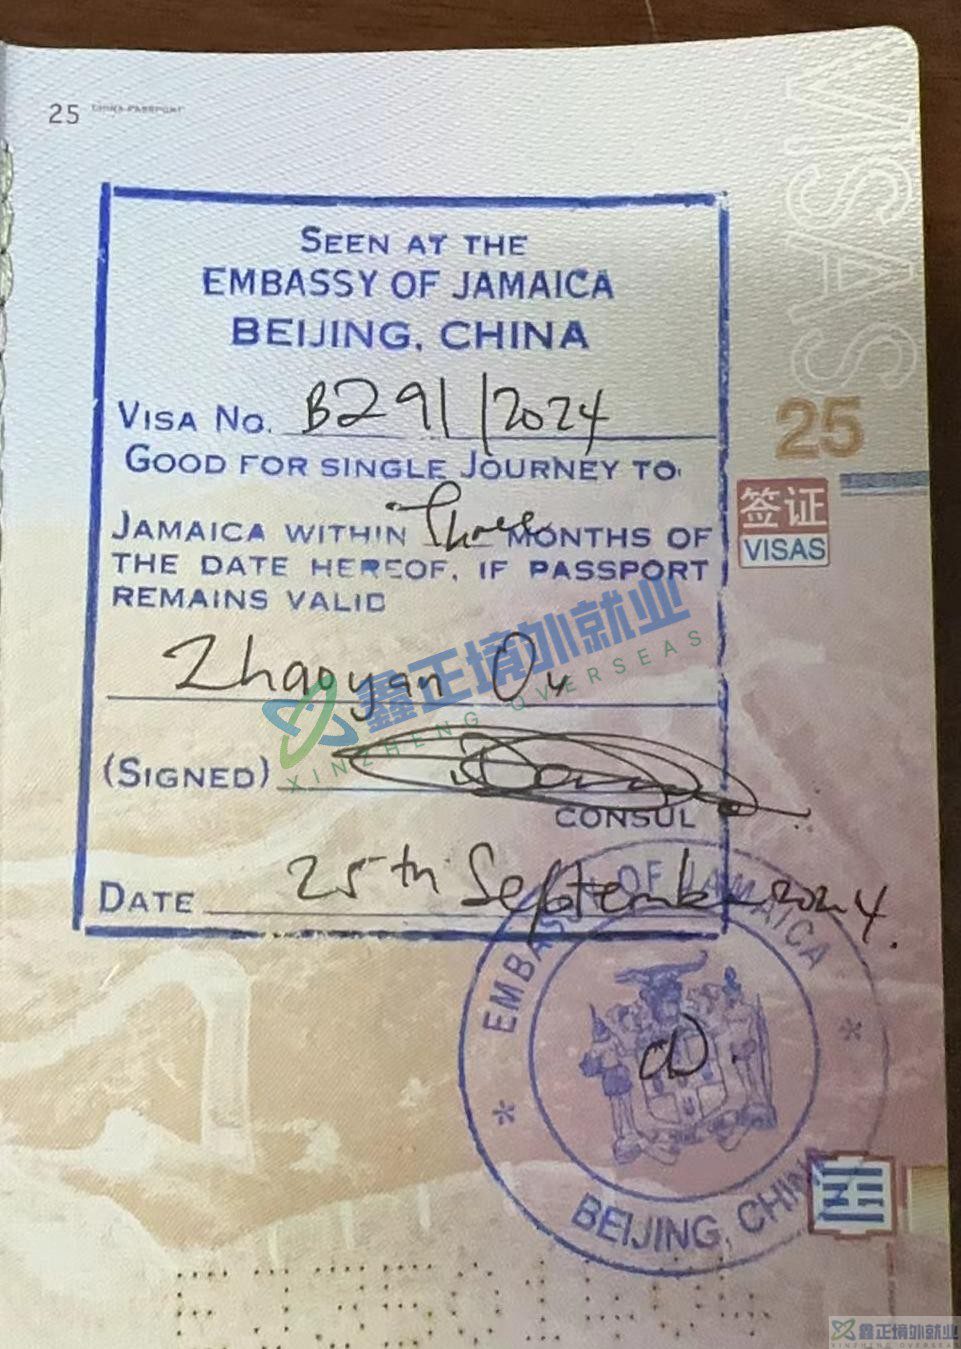 25 CHINA PASSPORT
VISAS
SEEN AT THE
EMBASSY OF JAMAICA
BEIJING, CHINA
VISA NO. B291/2024
GOOD FOR SINGLE JOURNEY TO
JAMAICA WITHIN Three MONTHS OF
THE DATE HEREOF, IF PASSPORT
REMAINS VALID
Zhaoyan Ou
(SIGNED)
CONSUL
DATE 25th September 2024.
25
签证
VISAS
鑫正境外就业
XINZHENG OVERSEAS
EMBASSY OF JAMAICA
BEIJING, CHINA
鑫正境外就业
XINZHENG OVERSEAS